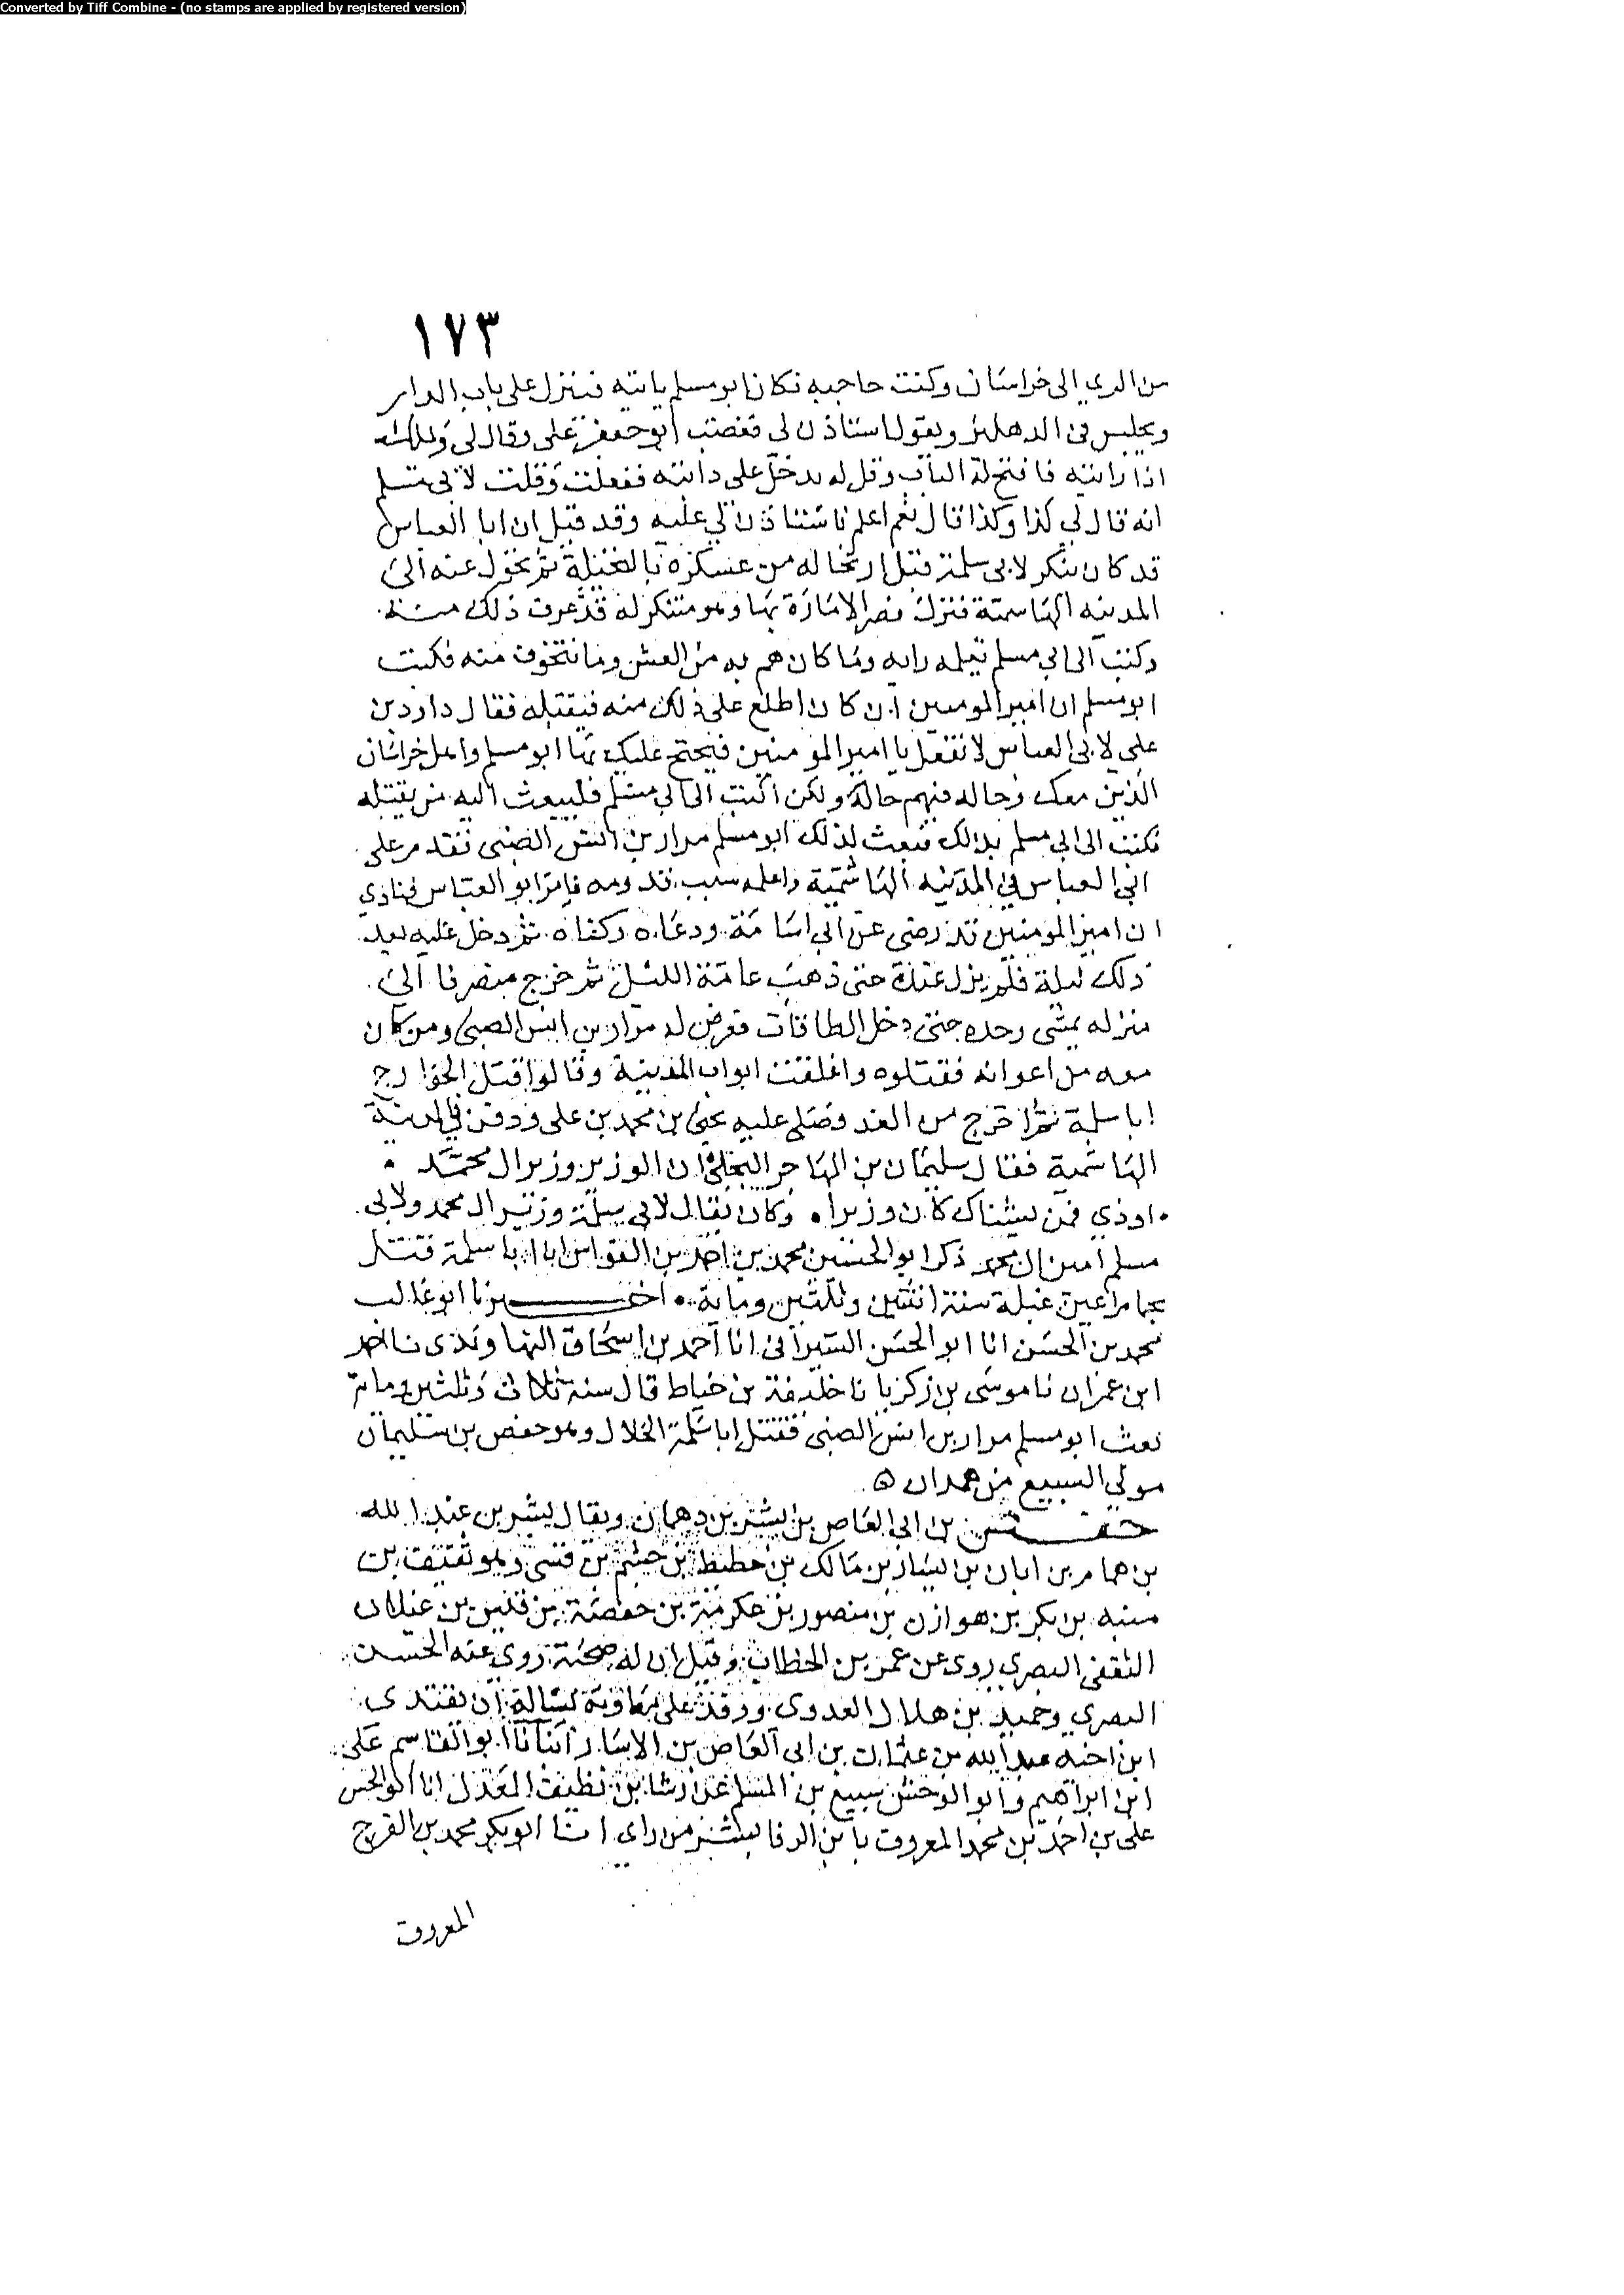 Converted by Tiff Combine - (no stamps are applied by registered version)
١٧٣
من الري الى خراسان وكنت حاجبه فكان ابو مسلم ياتيه فينزل على باب الدار
ويجلس في الدهليز ويقول استاذن لي فغضب ابو جعفر علي وقال لي ويلك
اذا رايته فافتح له الباب وقل له يدخل على دابته ففعلت وقلت لابي مسلم
انه قال لي كذا وكذا قال نعم اعلم فاستاذن لي عليه وقد قيل ان ابا العباس
قد كان تنكر لابي سلمة قبل ارتحاله من عسكره بالنخيلة ثم تحول عنه الى
المدينه الهاشمية فنزل قصر الامارة بها وهو متنكر له قد عرف ذلك منه
وكتب الى ابي مسلم يعلمه رايه وما كان هم به من الغش وما يتخوف منه فكتب
ابو مسلم ان امير المومنين ان كان اطلع على ذلك منه فيقتله فقال داود بن
علي لابي العباس لا تفعل يا امير المومنين فيحتج عليك بها ابو مسلم واهل خراسان
الذين معك وحاله فيهم حاله ولكن اكتب الى ابي مسلم فليبعث اليه من يقتله
فكتب الى ابي مسلم بذالك فبعث لذلك ابو مسلم مرار بن انس الضبي فقدم على
ابي العباس في المدينه الهاشمية واعلمه سبب قدومه فامر ابو العباس فنادي
ان امير المومنين قد رضي عن ابي سلمة ودعاه وكساه ثم دخل عليه بعد
ذلك ليلة فلم يزل عنده حتى ذهب عامة الليل ثم خرج منصرفا الى
منزله يمشي وحده حتى دخل الطاقات فعرض له مرار بن انس الضبي ومن كان
معه من اعوانه فقتلوه واغلقت ابواب المدينة وقالوا قتل الخوارج
ابا سلمة ثم اخرج من الغد وصلى عليه يحيى بن محمد بن علي ودفن في المدينة
الهاشمية فقال سليمان بن المهاجر البجلي ان الوزير وزير ال محمد
اودي فمن يشناك كان وزيرا وكان يقال لابي سلمة وزير ال محمد ولابي
مسلم امين ال محمد ذكر ابو الحسين محمد بن احمد بن القواس ان ابا سلمة قتل
بحمام اعين غيلة سنة اثنتين وثلثين وماية اخبرنا ابو غالب
محمد بن الحسن انا ابو الحسن السيرافي انا احمد بن اسحاق النهاوندي نا احمد
ابن عمران نا موسى بن زكريا نا خليفة بن خياط قال سنة ثلاث وثلثين وماية
بعث ابو مسلم مرار بن انس الضبي فقتل ابا سلمة الخلال وهو حفص بن سليمان
مولى السبيع من همدان ه
حفص بن ابي العاص بن بشر بن دهمان ويقال بشر بن عبد الله
بن همام بن ابان بن يسار بن مالك بن حطيط بن جشم بن قسي وهو ثقيف بن
منبه بن بكر بن هوازن بن منصور بن عكرمة بن خصفة بن قيس بن عيلان
الثقفي البصري روى عن عمر بن الخطاب وقيل ان له صحبة روى عنه الحسن
البصري وحميد بن هلال العدوي ووفد على معاوية يساله ان يفتدي
ابن اخيه عبد الله بن عثمان بن ابي العاص بن الاسار انبانا ابو القاسم علي
ابن ابراهيم وابو الوحش سبيع بن المسلم عن رشا بن نظيف المعدل انا ابو الحسن
علي بن احمد بن محمد المعروف بابن الرفا ببلبيس من راي انا ابو بكر محمد بن الفرج
المعروف